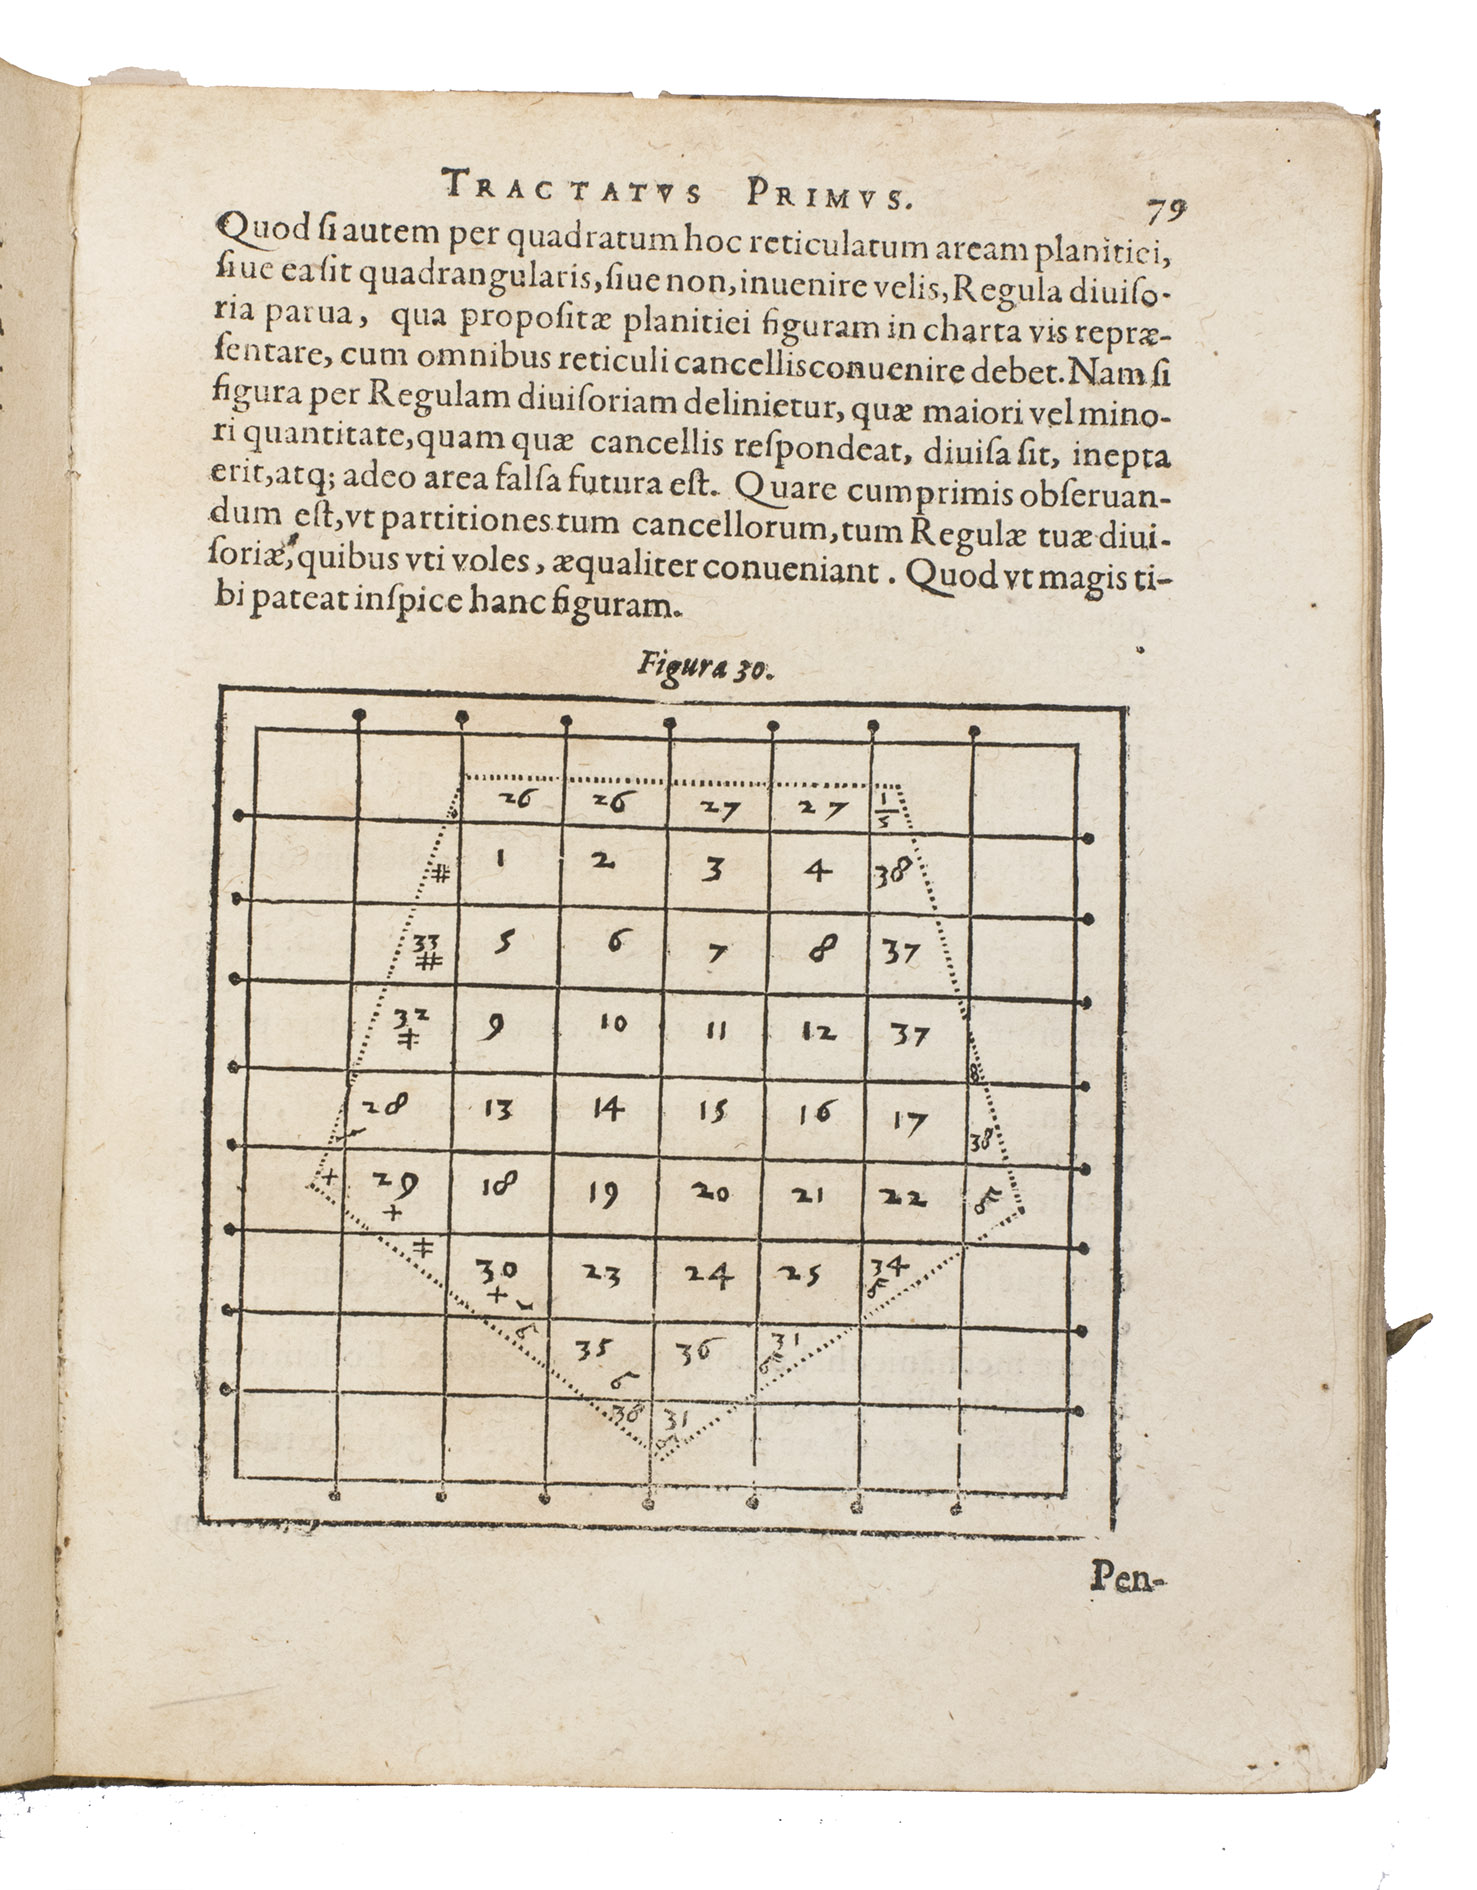 TRACTATVS PRIMVS. 79
Quod ſi autem per quadratum hoc reticulatum aream planitiei,
ſiue ea ſit quadrangularis, ſiue non, inuenire velis, Regula diuiſo-
ria parua, qua propoſitæ planitiei figuram in charta vis repræ-
ſentare, cum omnibus reticuli cancellis conuenire debet. Nam ſi
figura per Regulam diuiſoriam delinietur, quæ maiori vel mino-
ri quantitate, quam quæ cancellis reſpondeat, diuiſa ſit, inepta
erit, atq; adeo area falſa futura eſt. Quare cumprimis obſeruan-
dum eſt, vt partitiones tum cancellorum, tum Regulæ tuæ diui-
ſoriæ, quibus vti voles, æqualiter conueniant. Quod vt magis ti-
bi pateat inſpice hanc figuram.
Figura 30.
26 26 27 27 1/5
# 1 2 3 4 38
33 # 5 6 7 8 37
32 # 9 10 11 12 37 8
28 13 14 15 16 17 38
+ 29 + 18 19 20 21 22 6
# 30 + 23 24 25 34 6
6 35 6 36 31 6
38 31
Pen-